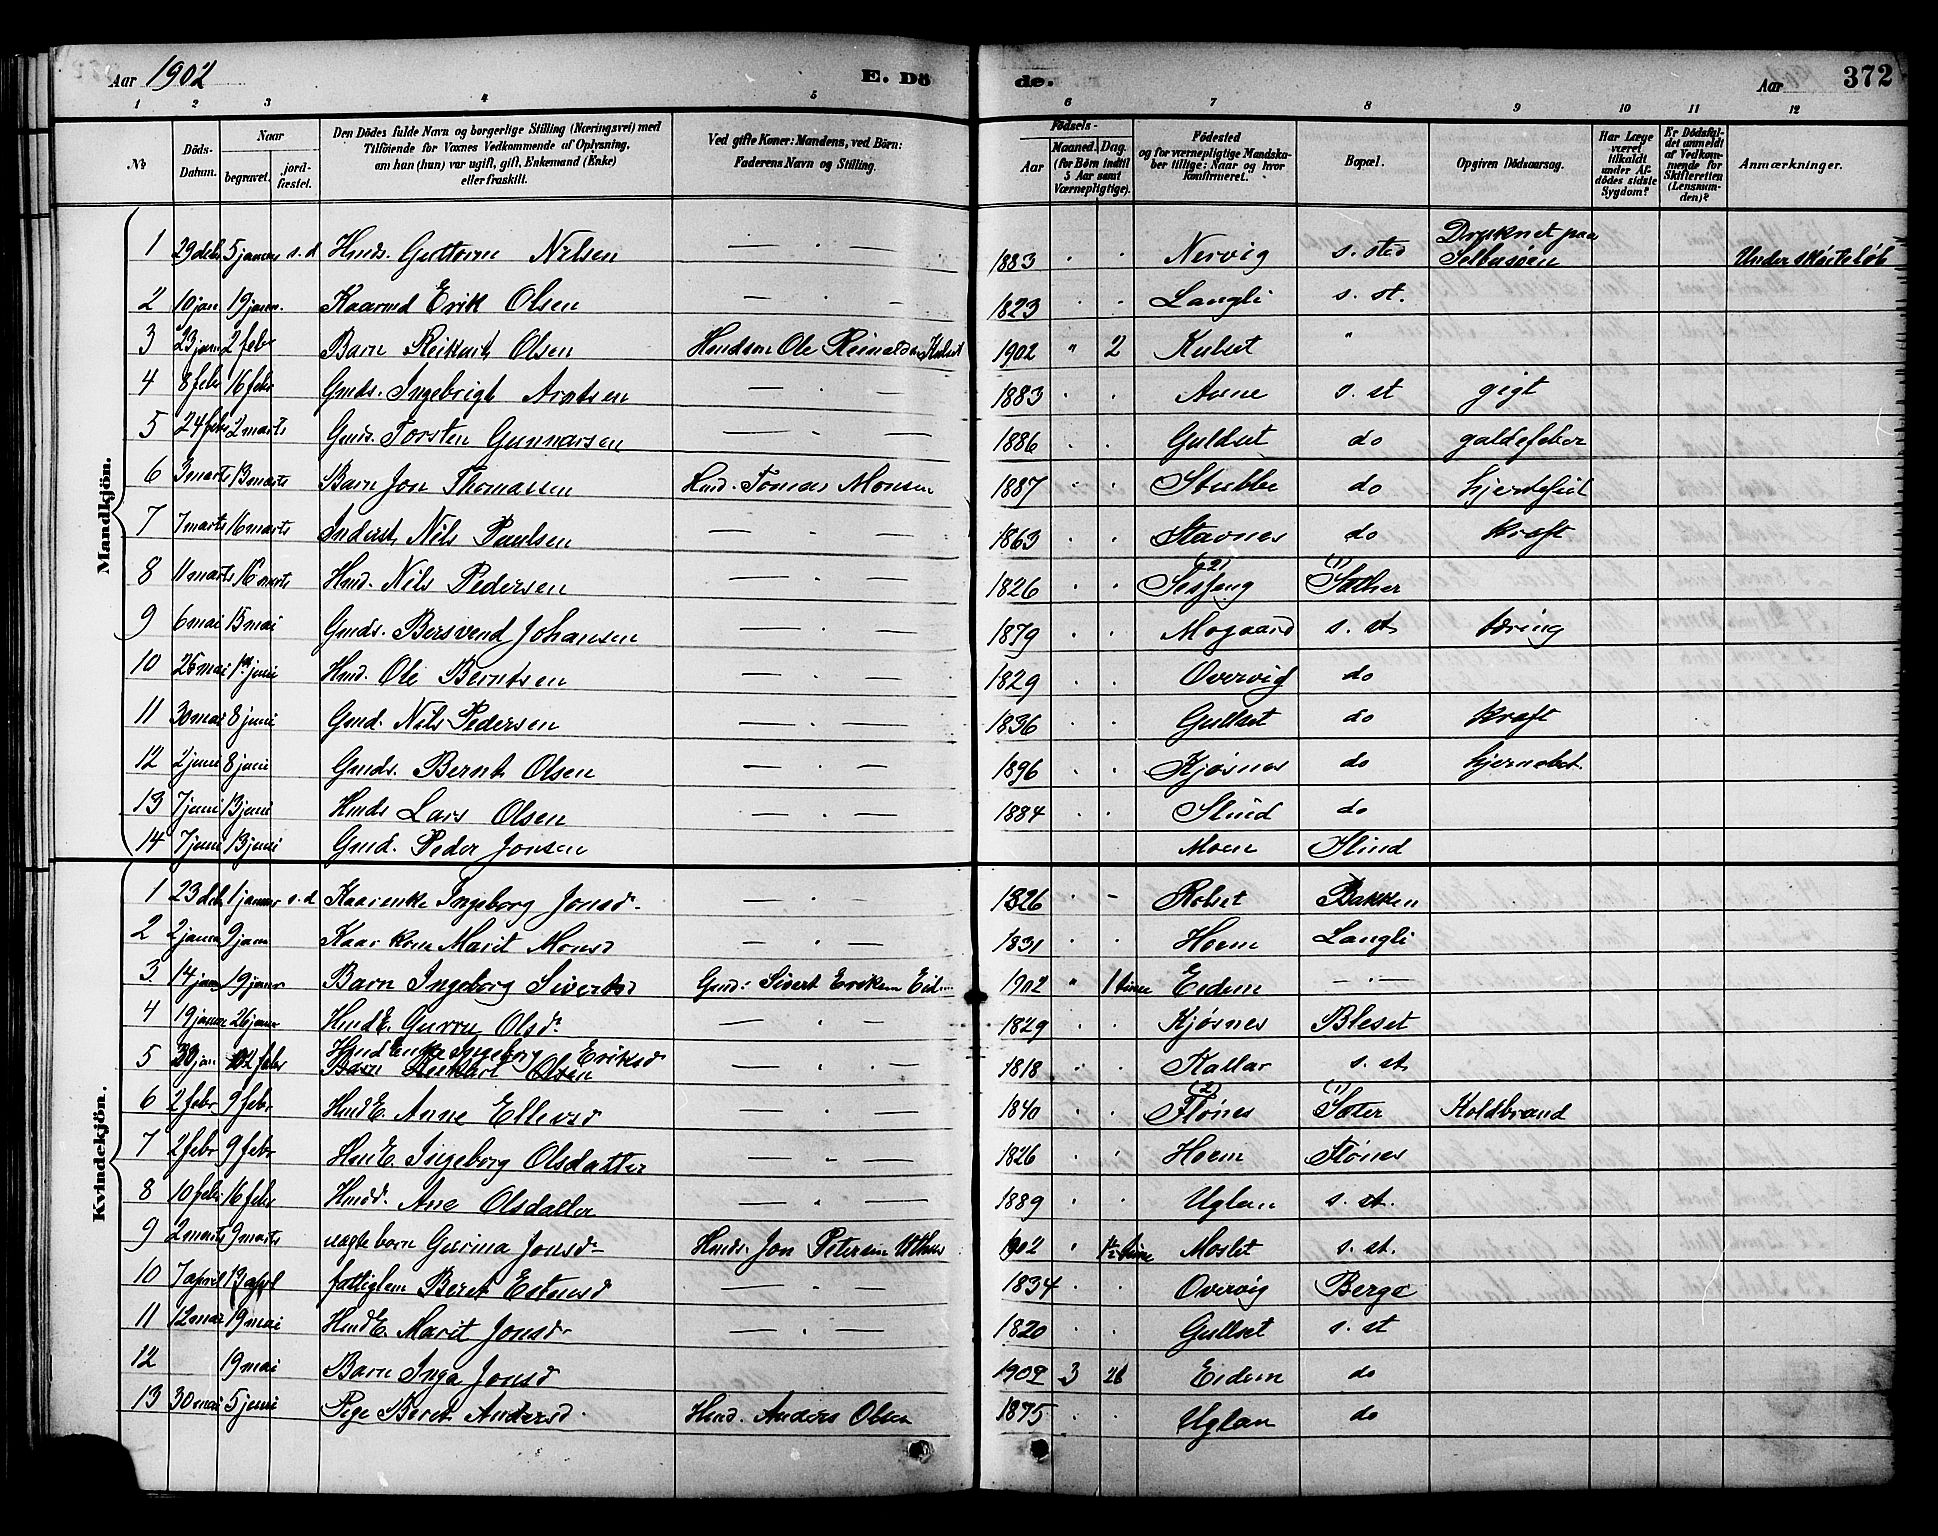 Aar 1902 E. Dö de. Aar 372
1 2 3 4 5 6 7 8 9 10 11 12
№ Döds-Datum. Naar begravet. jord-fæstet. Den Dödes fulde Navn og borgerlige Stilling (Næringsvei) med Tilföiende for Voxnes Vedkommende af Oplysning, om han (hun) var ugift, gift, Enkemand (Enke) eller fraskilt. Ved gifte Koner: Mandens, ved Börn: Faderens Navn og Stilling. Födsels- Aar Maaned. Dag. (for Börn indtil 5 Aar samt Værnepligtige). Födested og for værnepligtige Mandskaber tillige: Naar og hvor konfirmeret. Bopæl. Opgiven Dödsaarsag. Har Læge været tilkaldt under Afdödes sidste Sygdom? Er Dödsfaldet anmeldt af Vedkommende for Skifteretten (Lensmanden)? Anmærkninger.
Mandkjön.
1 29 debr 5 januar s. d Hmds. Guttorm Nilsen — . — 1883 . . Nervig s. sted Druknet paa Selbusøen Under skøiteløb
2 10 jan 19 janu. Kaarmd Erik Olsen — . — 1823 . . Langli s. st.
3 23 janu 2 febr Barn Reikart Olsen Ole 1902 " 2 Kulset "
4 8 febr 16 febr Gmds. Ingebrigt Arntsen — . — 1883 . . Aune s. st gigt
5 24 febr 2 marts Gmds. Torsten Gunnarsen — . — 1886 . . Guldset do galdefeber
6 3 marts 13 marts Barn Jon Thomassen Hmd. Tomas Monsen 1887 . . Stubbe do hjertefeil
7 7 marts 16 marts Inderst Nils Paulsen — . — 1863 . . Stavnes do kræft
8 11 marts 16 marts Hmd. Nils Pedersen — . — 1826 . . (2) Sesseng (1) Sæther
9 6 mai 15 mai Gmds. Bersvend Johansen — . — 1879 . . Mogaard s. st tæring
10 26 mai 1 juni Hmd. Ole Berntsen — . — 1829 . . Overvig do
11 30 mai 8 juni Gmd. Nils Pedersen — . — 1836 . . Gullset do kræft
12 2 juni 8 juni Gmds. Bernt Olsen — . — 1896 . . Kjøsnes do hjernebet.
13 7 juni 13 juni Hmds Lars Olsen — . — 1884 . . Slind do
14 7 juni 13 juni Gmd. Peder Jonsen Moen Slind
Kvindekjön.
1 23 deb 1 januar s. d Kaarenke Ingeborg Jonsd. — . — 1826 . - Rolset Bakken
2 2 janu 9 janu Kaar kone Marit Monsd — . — 1831 . . Hoem Langli
3 14 janu 19 janur Barn Ingeborg Sivertsd Gmd: Sivert Eriksen 1902 " 1 time Eidem — . —
4 19 janu 26 janu HmdE. Gurru Olsd. — . — 1829 . . Kjøsnes Bleset
5 30 jan 2 febr Hmd Enke Ingeborg Eriksd — . — 1818 . . Kallar s. st.
Barn Reikart Olsen
6 2 febr 9 febr HmdE. Anne Ellevsd — . — 1840 . . (2) Flønes (1) Sæter Koldbrand
7 2 febr 9 febr HmE. Ingeborg Olsdatter — . — 1826 . . Hoem Flønes
8 10 febr 16 febr Hmdd. Ane Olsdatter — . — 1889 . . Uglan s. st.
9 2 marts 9 marts uægte barn Gurina Jonsd- Hmds. Jon Petersen 1902 " 1/2 time Moslet s. st.
10 7 april 13 april fattiglem Beret Estensd — . — 1834 . . Overvig Berge
11 12 mai 19 mai HmdE. Marit Jonsd. — . — 1820 . . Gullset s. st
12 19 mai Barn Inga Jonsd 1902 3 26 Eidem do
13 30 mai 5 juni Pige Beret Andersd. Hmd. Anders Olsen 1875 . . Uglan do